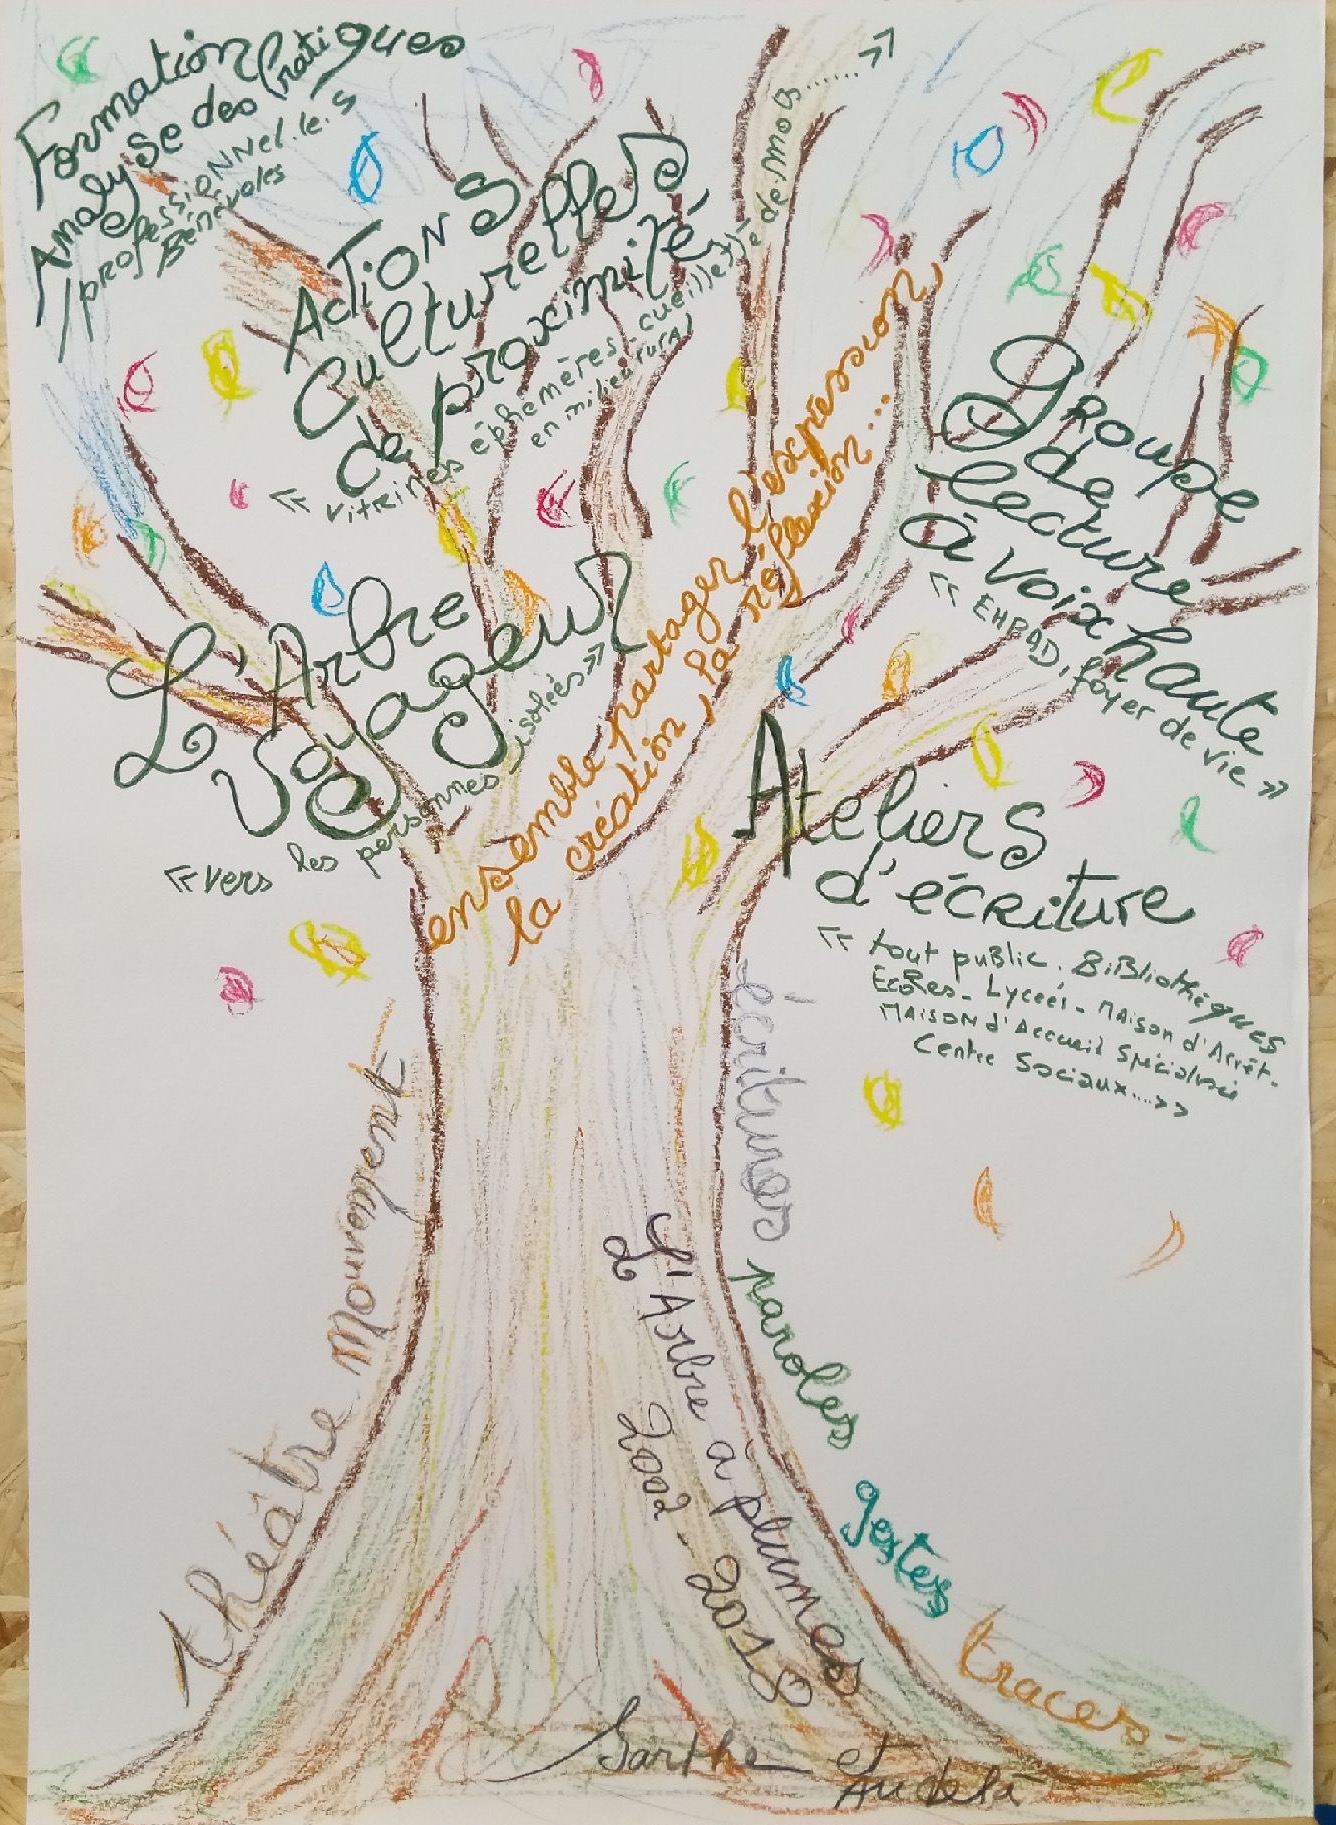 Formation
Analyse des Pratiques
professionnel.le.s
Bénévoles
ACTIONS
Culturelles
de proximité
<< vitrines éphémères - cueillette de mots......>>
en milieu rural
L'Arbre
voyageur
<< vers les personnes isolées >>
ensemble partager l'expression,
la création, la réflexion...
Groupe
de
lecture
à voix haute
<< EHPAD, foyer de vie >>
Ateliers
d'écriture
<< tout public. Bibliothèques
Ecoles - Lycées - Maison d'Arrêt -
Maison d'Accueil Spécialisé
Centre Sociaux....>>
Théâtre Mouvement
écritures paroles gestes traces
L'Arbre à plumes
2002 - 2018
Sarthe et
Au delà